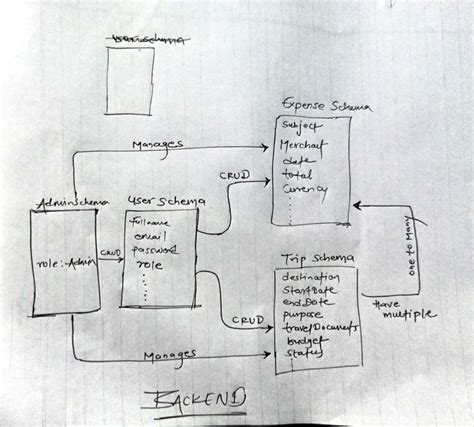 userschema
Expense Schema
Subject
Merchant
date
total
Currency
Manages
CRUD
AdminSchema
role:-Admin
CRUD
User Schema
fullname
email
password
role
Trip Schema
destination
StartDate
endDate
purpose
travelDocuments
budget
Status
one to Many
Have
multiple
CRUD
Manages
BACKEND